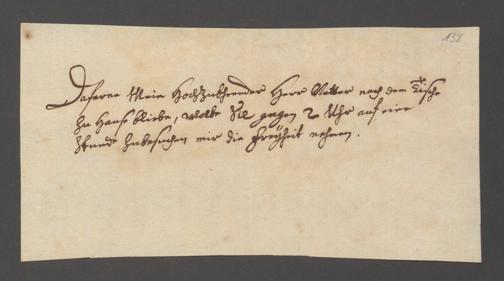 138
Daferne Mein Hochzuehrender Herr Vetter nach dem Tische
zu Hauß bliebe, wolte Sie gegen 2 Uhr auf eine
Stunde zubesuchen mir die Freyheit nehmen.